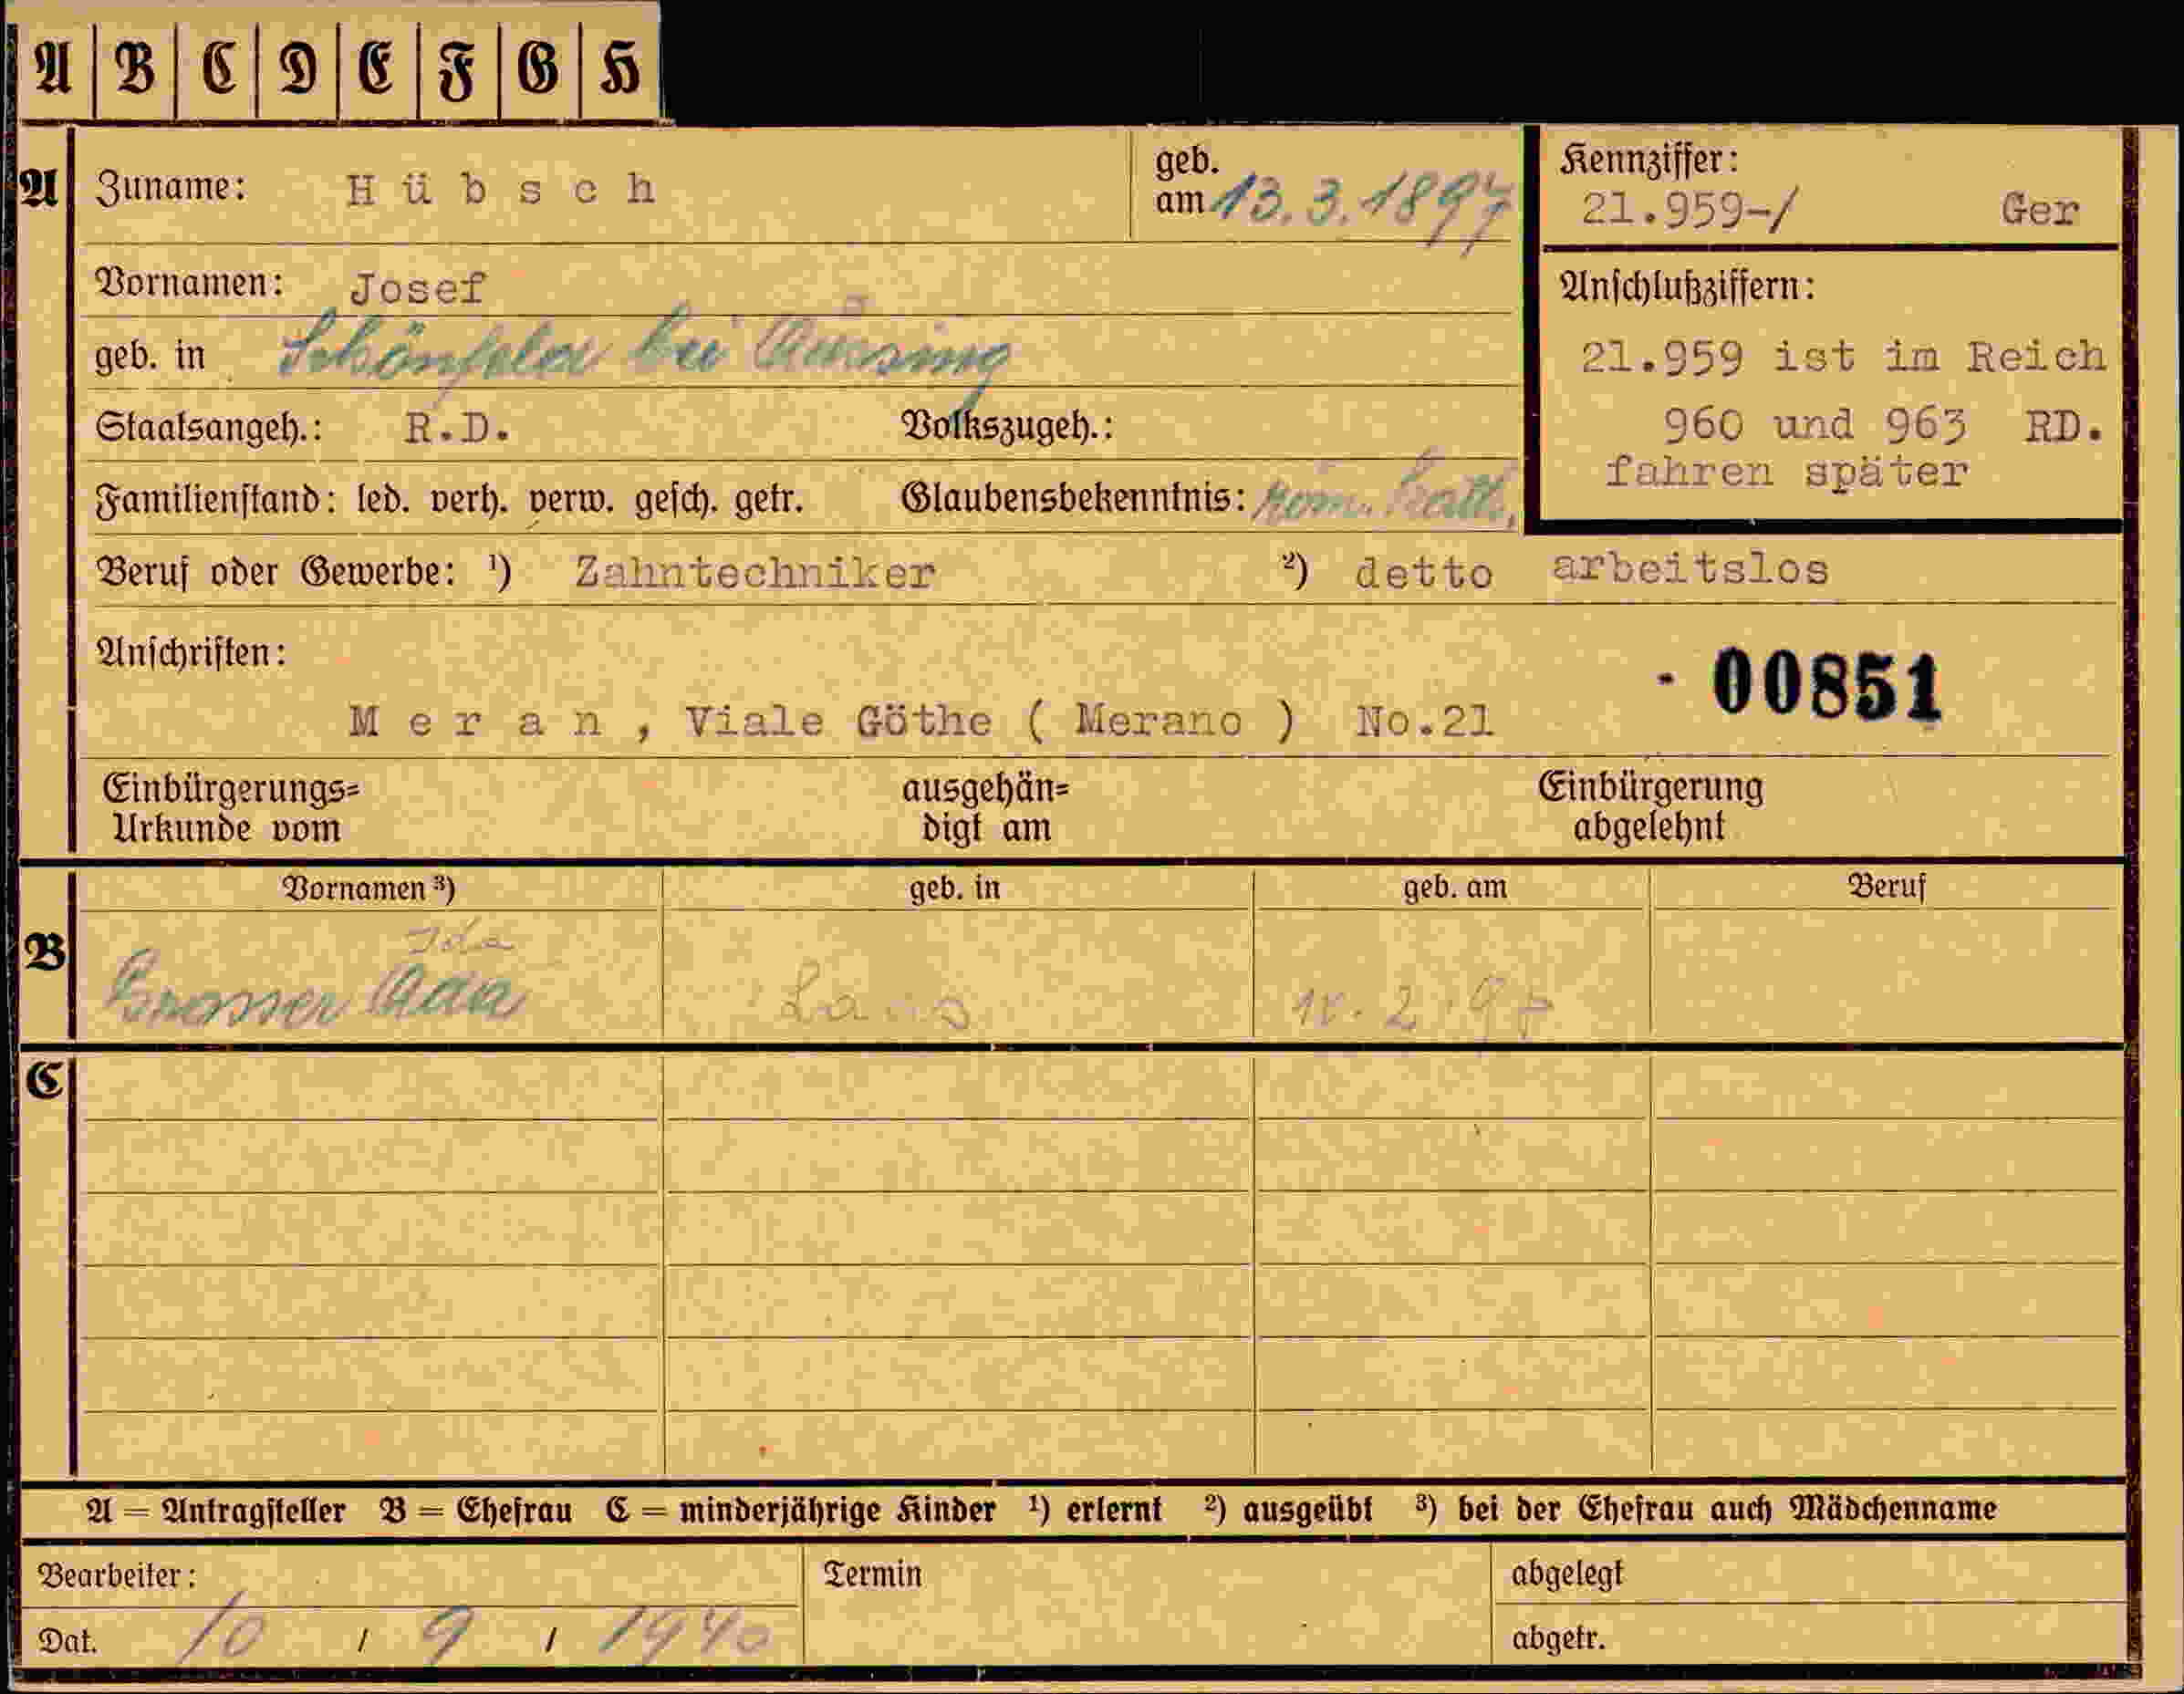 A B C D E F G H
A Zuname: Hübsch geb. am 13.3.1897 Kennziffer: 21.959-/ Ger
Vornamen: Josef Anschlußziffern:
geb. in Schönfeld bei Aussig 21.959 ist im Reich
Staatsangeh.: R.D. Volkszugeh.: 960 und 963 RD.
fahren später
Familienstand: led. verh. verw. gesch. getr. Glaubensbekenntnis: röm. kath.
Beruf oder Gewerbe: ¹) Zahntechniker ²) detto arbeitslos
Anschriften:
- 00851
Meran, Viale Göthe ( Merano ) No.21
Einbürgerungs= ausgehän= Einbürgerung
Urkunde vom digt am abgelehnt
Vornamen ³) geb. in geb. am Beruf
Ida
B Ada
C
A = Antragsteller B = Ehefrau C = minderjährige Kinder ¹) erlernt ²) ausgeübt ³) bei der Ehefrau auch Mädchenname
Bearbeiter: Termin abgelegt
Dat. 10 / 9 / 1940 abgetr.